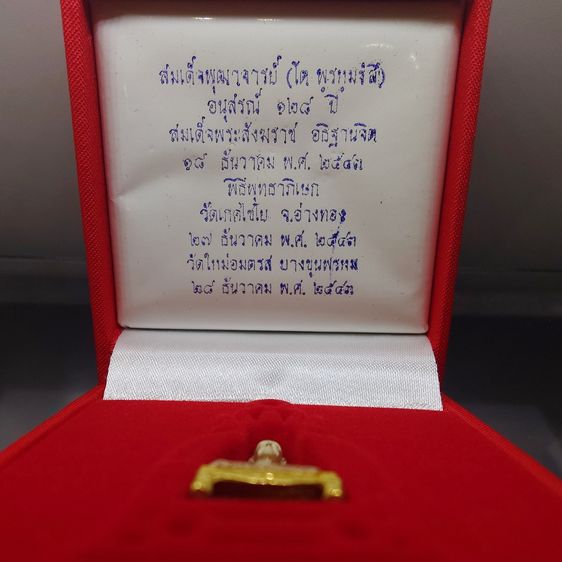 สมเด็จพุฒาจารย์ (โต พฺรหฺมรํสี)
อนุสรณ์ ๑๒๘ ปี
สมเด็จพระสังฆราช อธิฐานจิต
๑๘ ธันวาคม พ.ศ. ๒๕๔๓
พิธีพุทธาภิเษก
วัดเกศไชโย จ.อ่างทอง
๒๗ ธันวาคม พ.ศ. ๒๕๔๓
วัดใหม่อมตรส บางขุนพรหม
๒๘ ธันวาคม พ.ศ. ๒๕๔๓